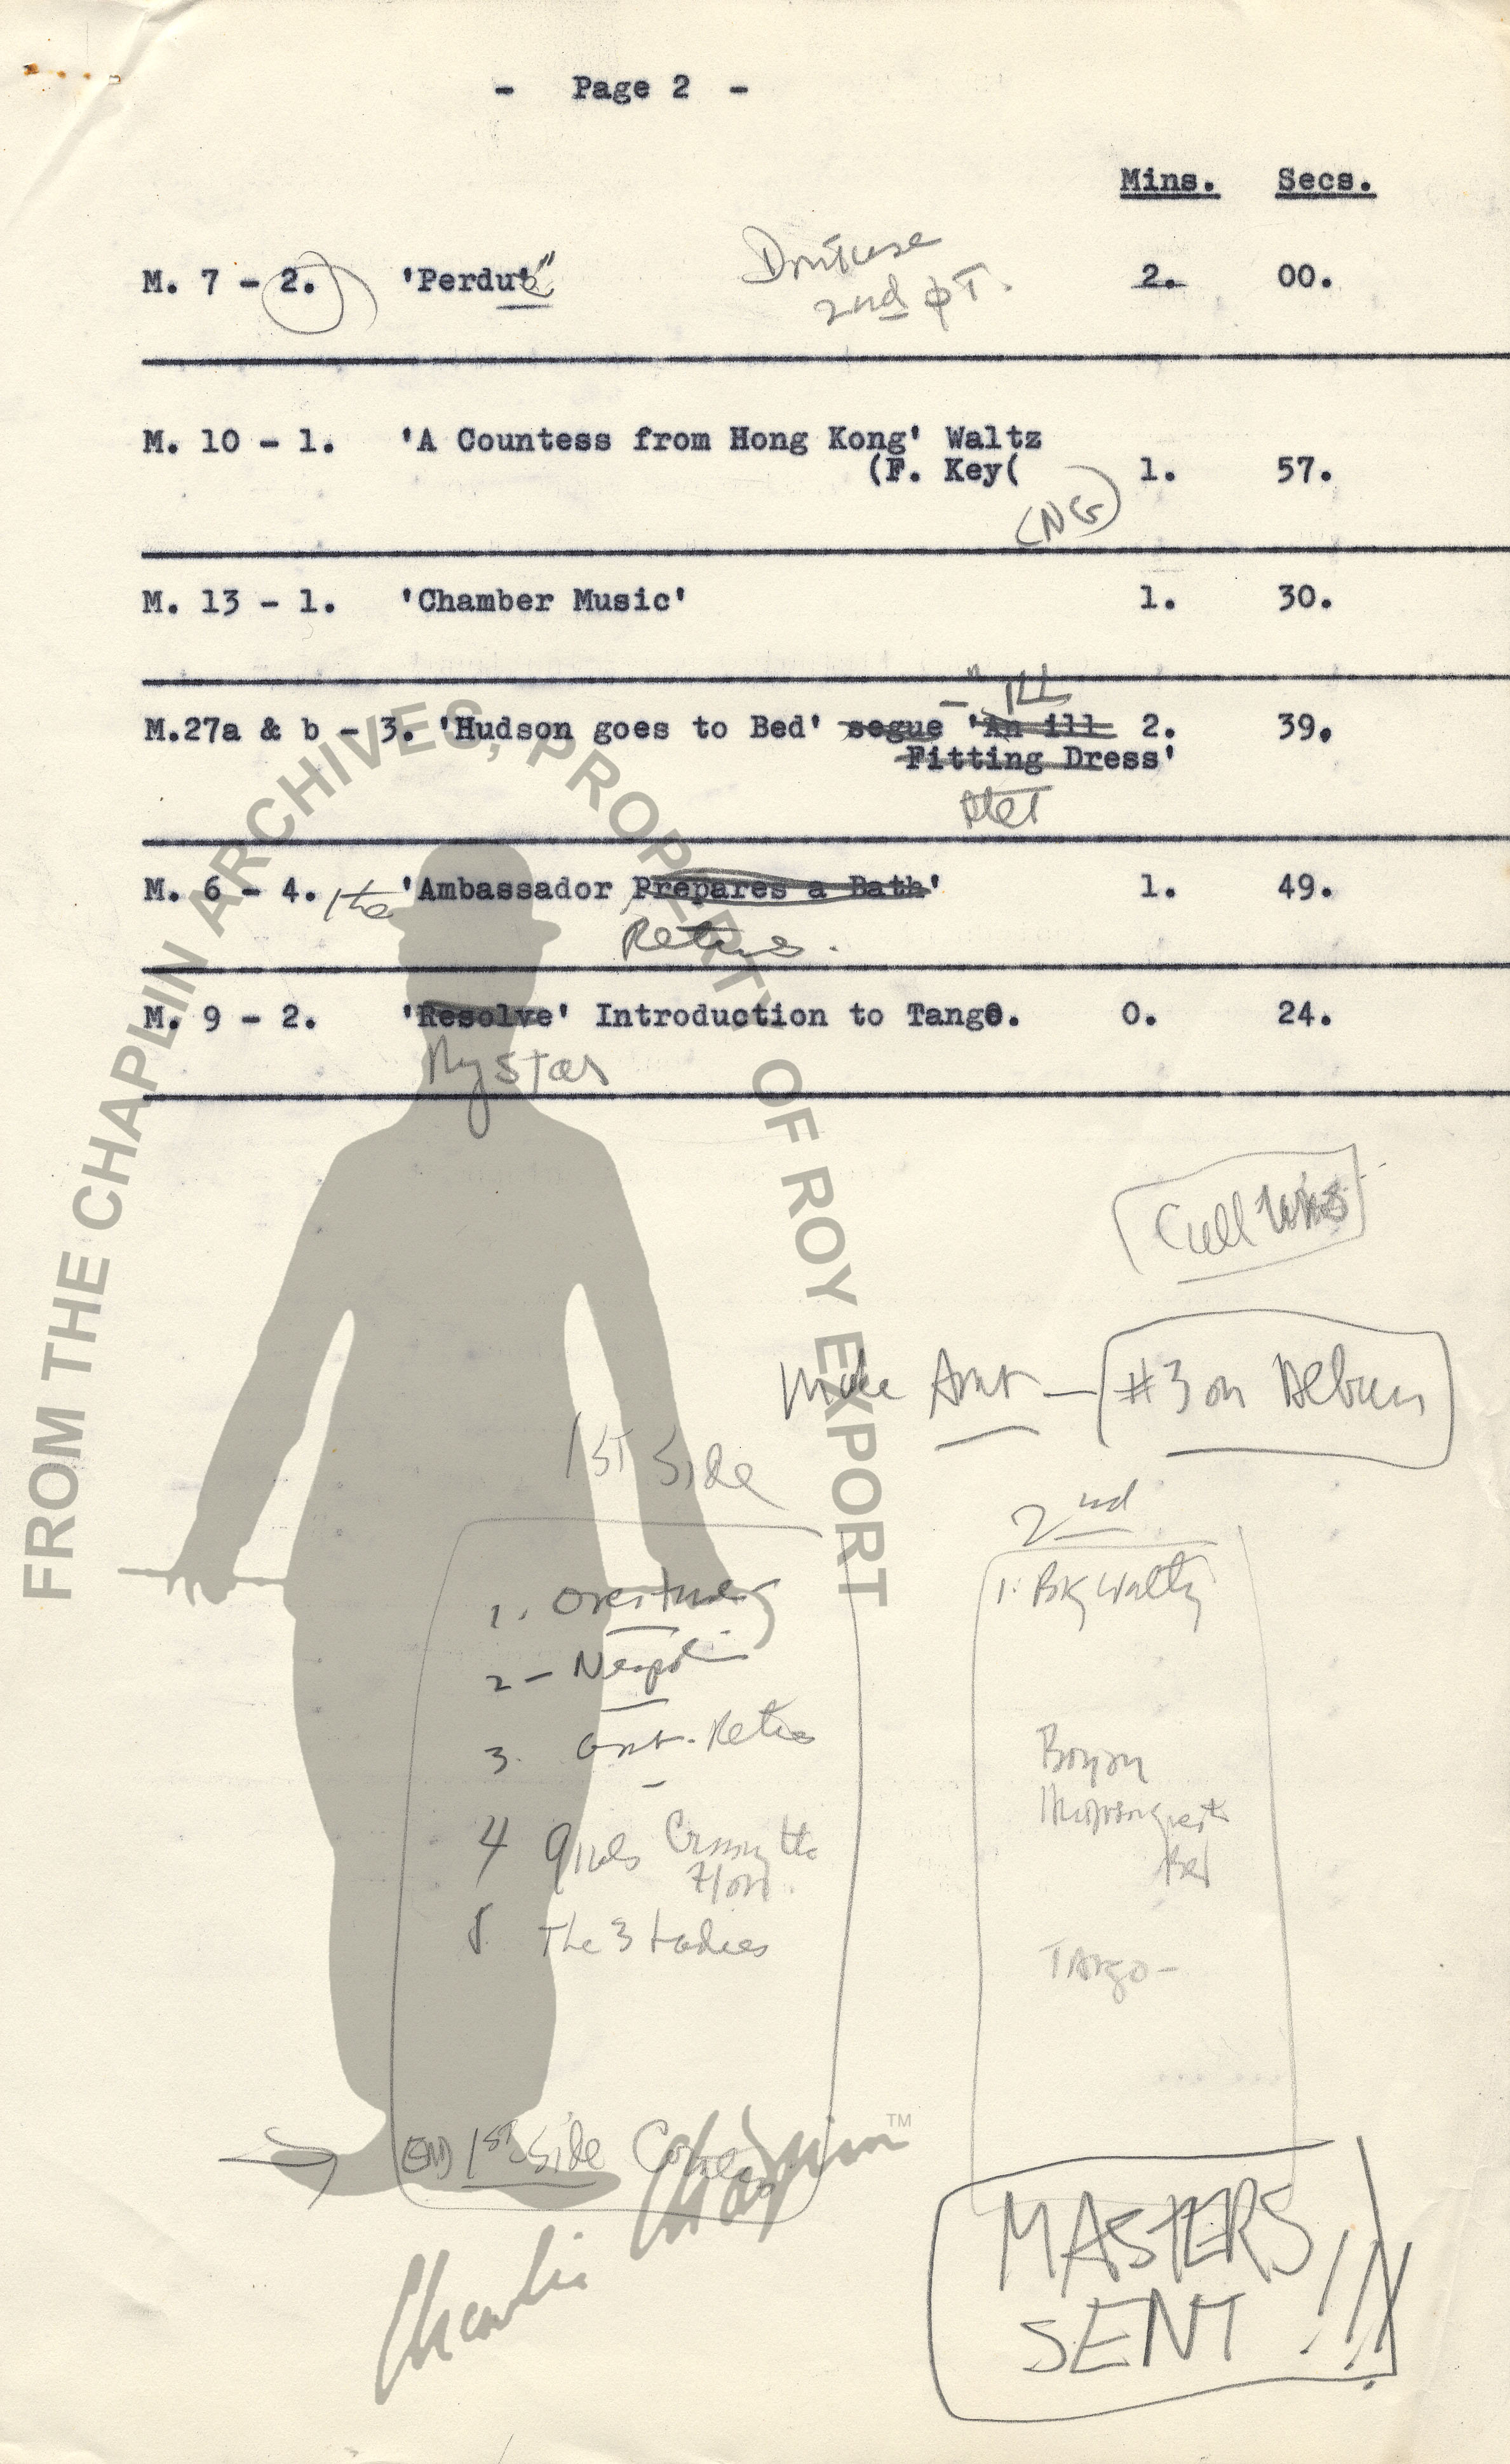 - Page 2 -
Mins. Secs.
M. 7 - 2. 'Perdu' 2. 00.
Dont use
2nd pT.
M. 10 - 1. 'A Countess from Hong Kong' Waltz
(F. Key( 1. 57.
(NG)
M. 13 - 1. 'Chamber Music' 1. 30.
ILL
M.27a & b - 3. 'Hudson goes to Bed' segue 'An ill 2. 39.
Fitting Dress'
M. 6 - 4. the 'Ambassador Prepares a Bath' 1. 49.
Retires.
M. 9 - 2. 'Resolve' Introduction to Tango. 0. 24.
My Star
Call
#3 on Album
1ST Side
2nd
1. Overture
1. Big Waltz
2 -
3.
4 Crossing the
5. The 3 Ladies
Tango -
END 1ST Side Countess
MASTERS
SENT !!!
FROM THE CHAPLIN ARCHIVES, PROPERTY OF ROY EXPORT
Charlie Chaplin TM